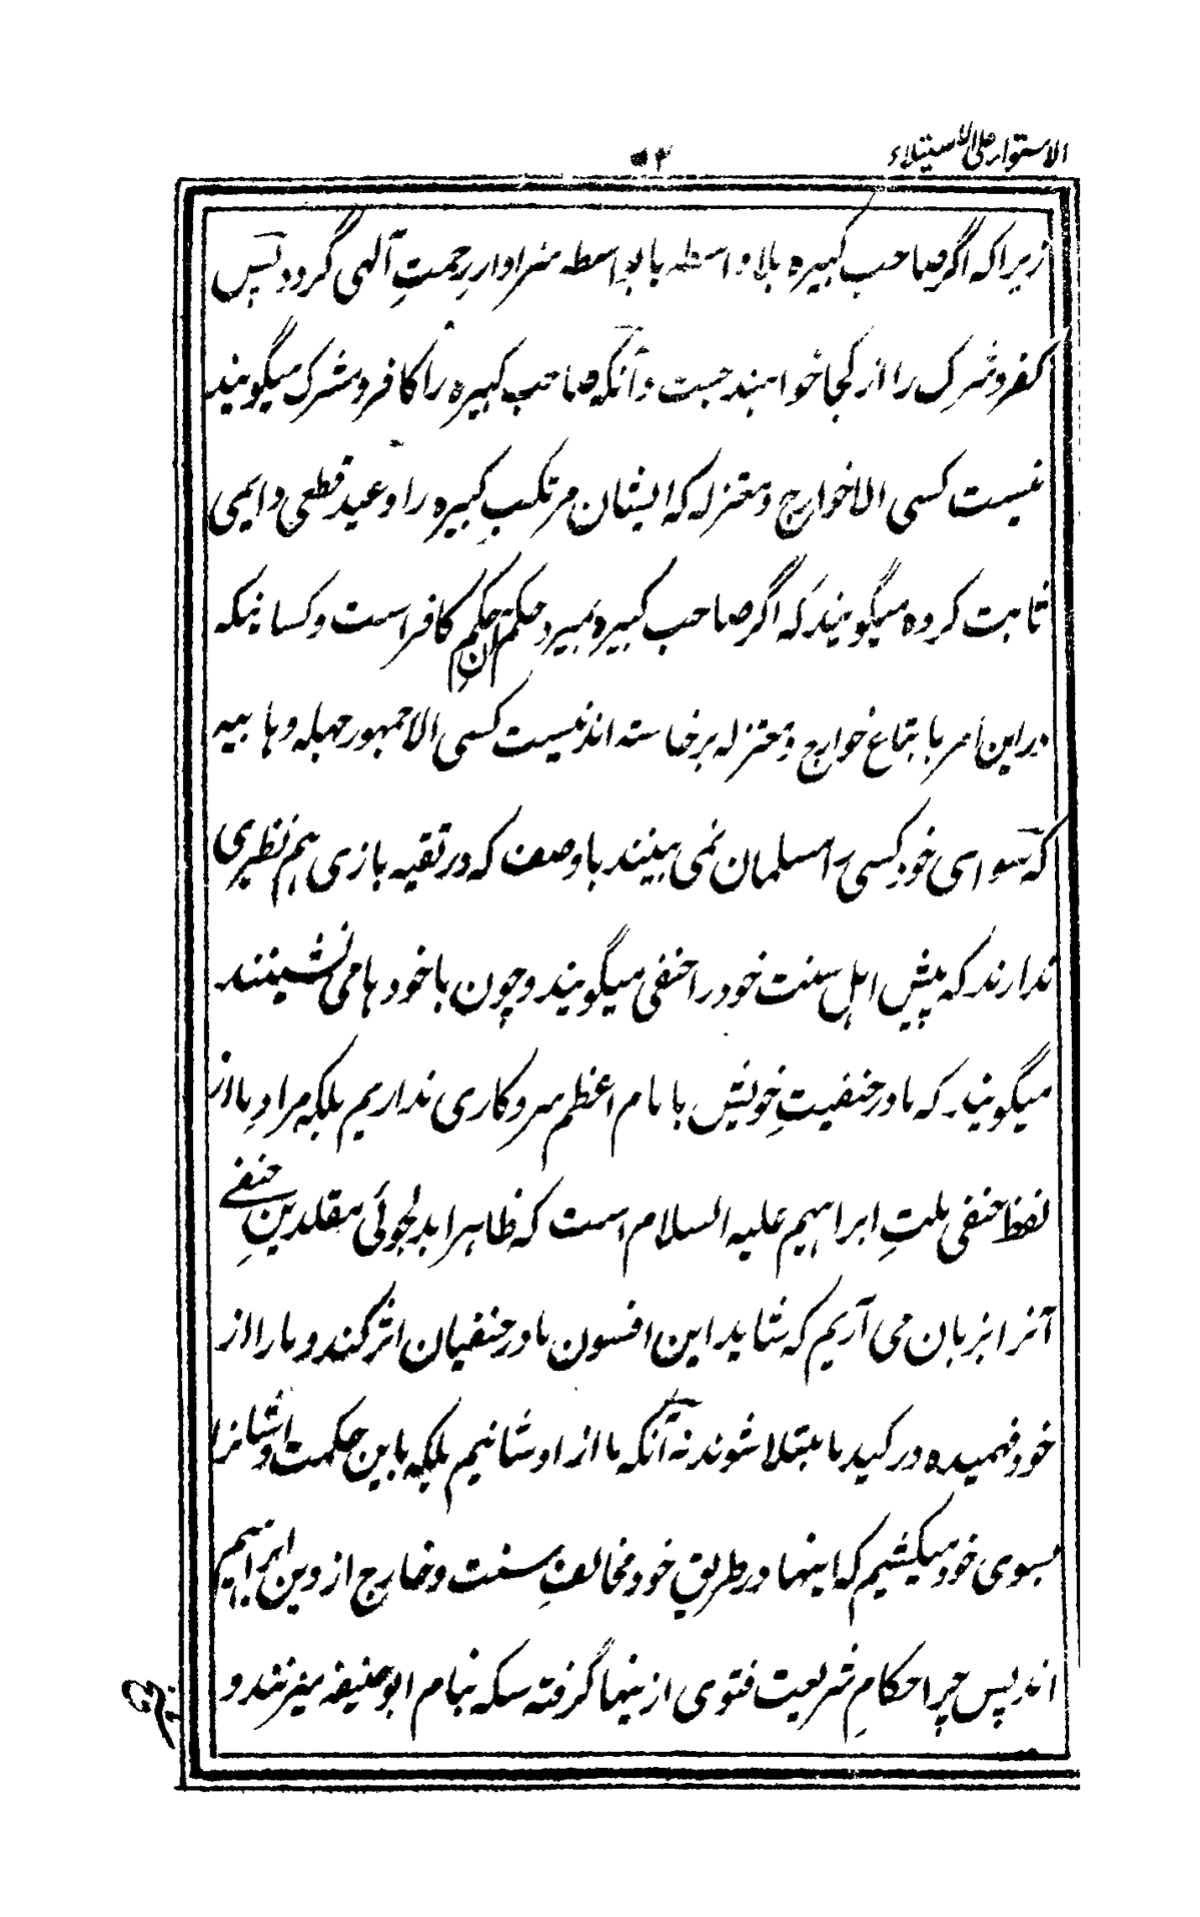 الاستواء علی الاستیلاء
زیرا که اگر صاحب کبیره بلا واسطه یا بواسطه سزاوار رحمتِ آلهی گردد پس
کفر و شرک را از کجا خواهند جست و آنکه صاحب کبیره را کافر و مشرک میگویند
نیست کسی الا خوارج و معتزله که ایشان مرتکبِ کبیره را وعید قطعی دایمی
ثابت کرده میگویند که اگر صاحب کبیره بمیرد حکم آن حکم کافر است و کسانیکه
در این امر باتباع خوارج و معتزله برخاسته اند نیست کسی الا جمهور جهله وهابیه
که سوای خود کسی را مسلمان نمی بینند باوصف که در تقیه بازی هم نظیری
ندارند که پیش اهل سنت خود را حنفی میگویند و چون با خودها می نشینند
میگویند که ما در حنفیتِ خویش با امام اعظم سروکاری نداریم بلکه مرادِ ما از
لفظ حنفی ملتِ ابراهیم علیه السلام است که ظاهرا بدلجوئی مقلدینِ حنفی
آنرا بزبان می آریم که شاید این افسون ما در حنفیان اثر کند و ما را از
خود فهمیده در کید ما مبتلا شوند نه آنکه ما از اوشانیم بلکه باین حکمت اوشانرا
بسوی خود میکشیم که اینها در طریقِ خود مخالفِ سنت و خارج از دین ابراهیم
اند پس چرا احکامِ شریعت فتوی ازینها گرفته سکه بنام ابو حنیفه میزنند و